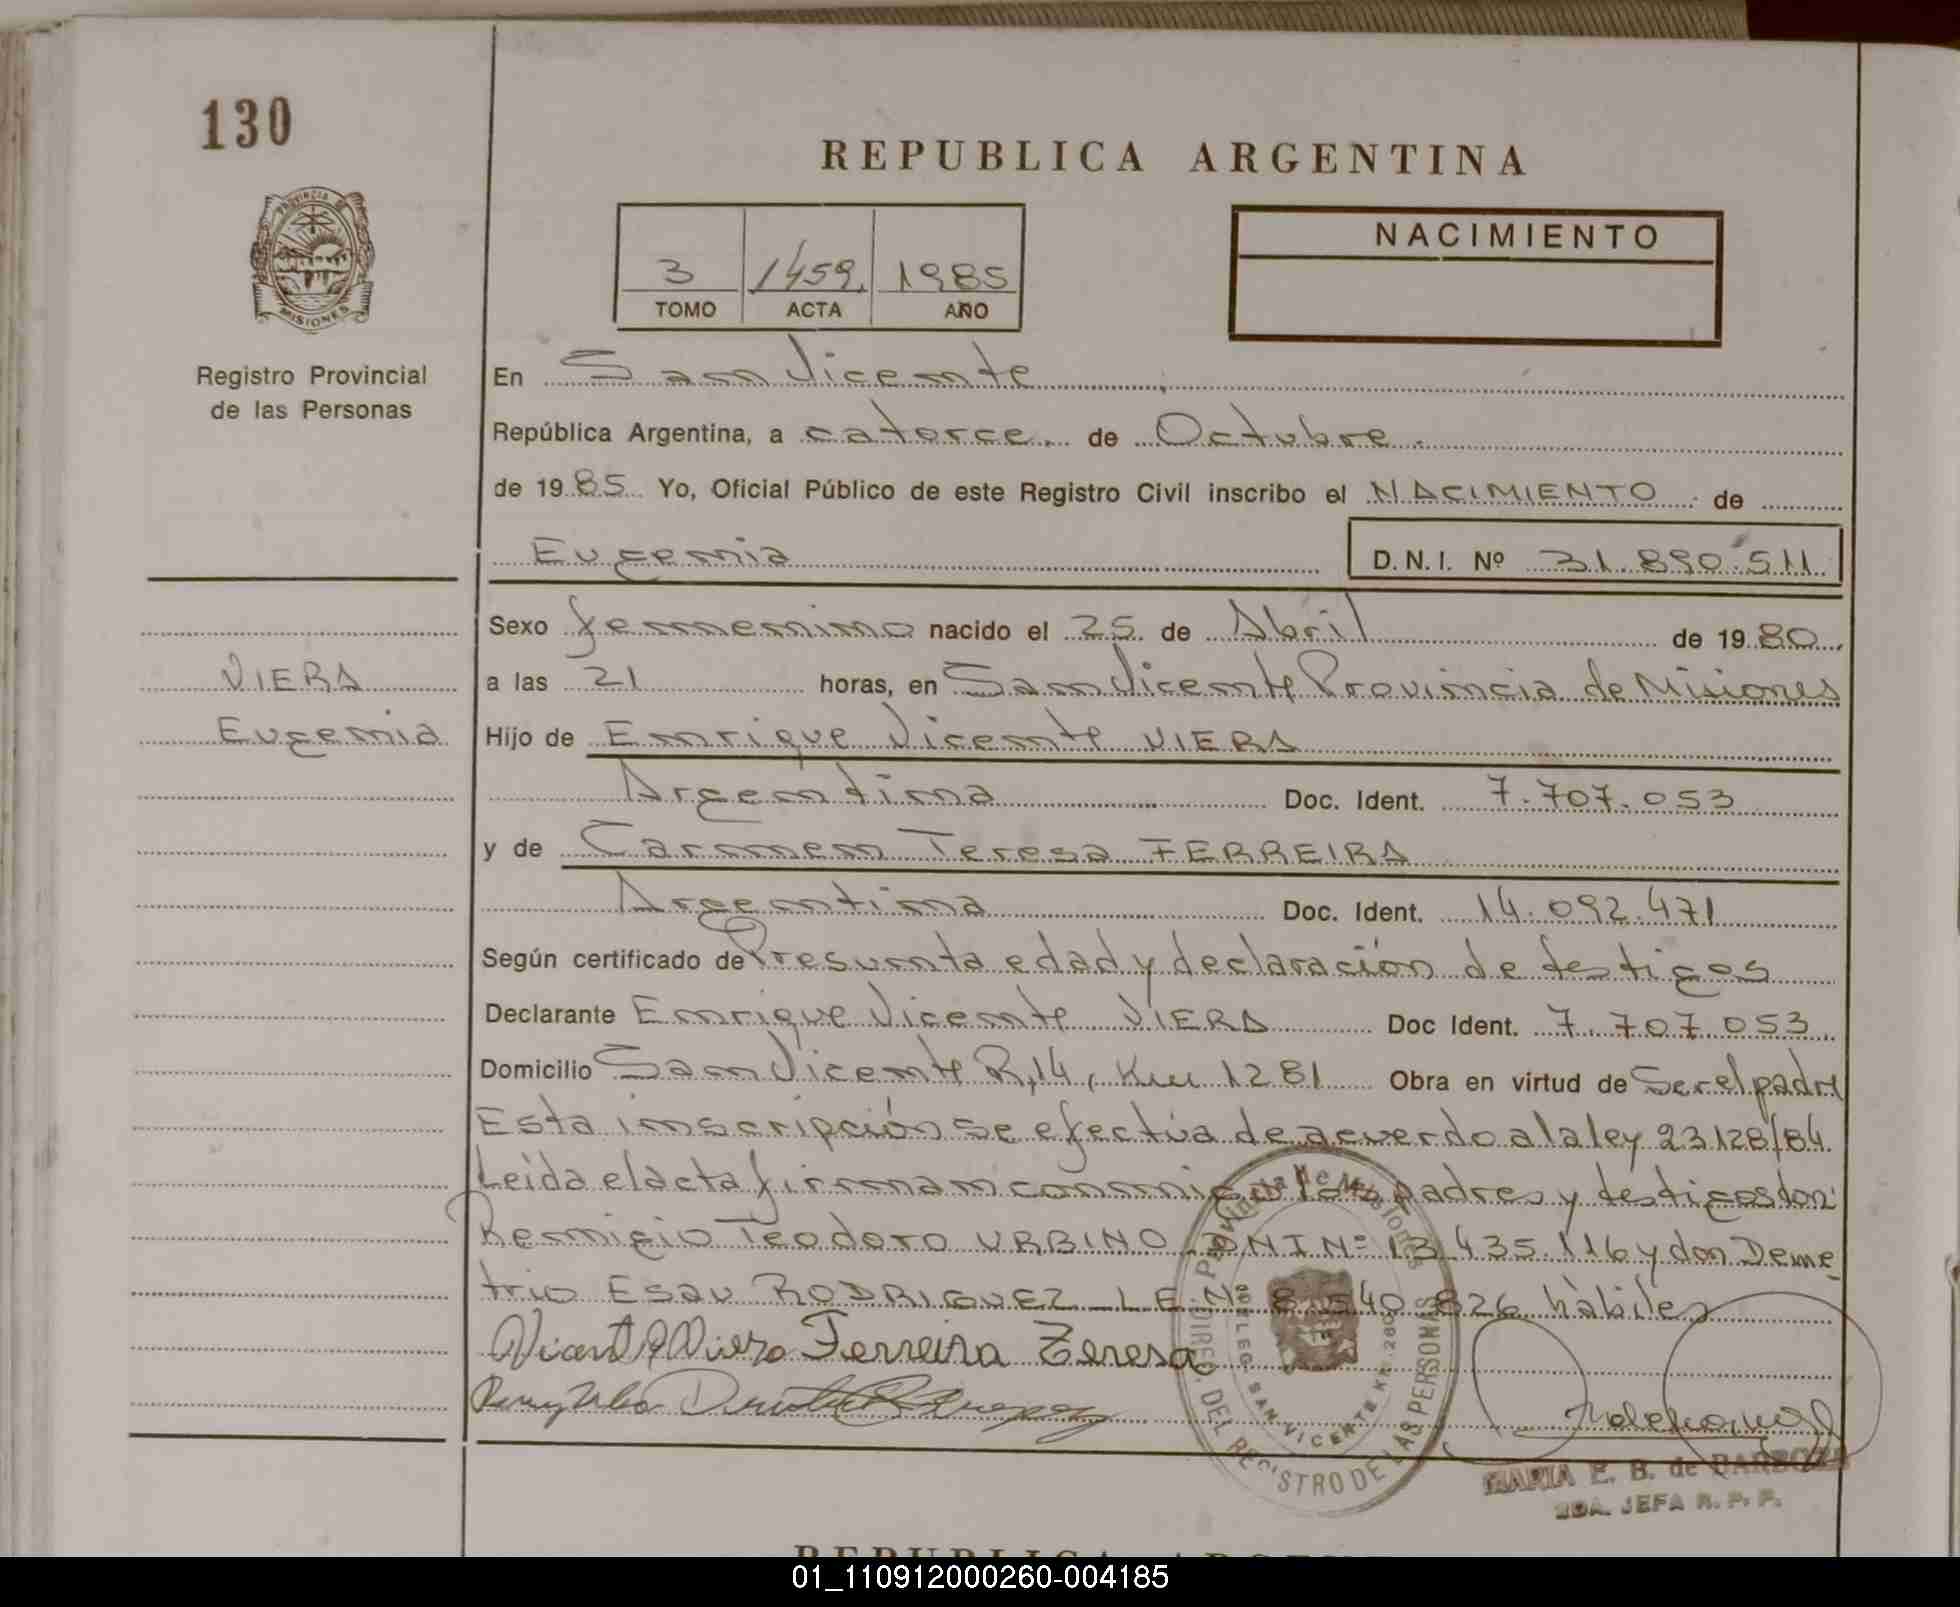 130
REPUBLICA ARGENTINA
PROVINCIA DE
MISIONES
Registro Provincial
de las Personas
3 1459 1985
TOMO ACTA AÑO
NACIMIENTO
En San Vicente
República Argentina, a catorce. de Octubre.
de 19 85 Yo, Oficial Público de este Registro Civil inscribo el NACIMIENTO de
Eugenia D.N.I. Nº 31.890.511
Sexo femenino nacido el 25 de Abril de 19 80
VIERA
a las 21 horas, en San Vicente Provincia de Misiones
Eugenia
Hijo de Enrique Vicente VIERA
Argentina Doc. Ident. 7.707.053
y de Carmen Teresa FERREIRA
Argentina Doc. Ident. 14.092.471
Según certificado de Presunta edad y declaración de testigos
Declarante Enrique Vicente VIERA Doc Ident. 7.707.053
Domicilio San Vicente R,14, Km 1281 Obra en virtud de Ser el padre
Esta inscripción se efectúa de acuerdo a la ley 23.128/84.
Leída el acta firman conmigo los padres y testigos don:
Remigio Teodoro URBINO DNI Nº 13.435.116 y don Deme
trio Esau RODRIGUEZ L.E.Nº 8.540.826 hábiles
Ferreira Teresa
Provincia de Misiones
DIREC. DEL REGISTRO DE LAS PERSONAS
DELEG. SAN VICENTE KM. 280
MARIA E. B. de BARBOZA
2DA. JEFA R. P. P.
REPUBLICA ARGENTINA
01_110912000260-004185